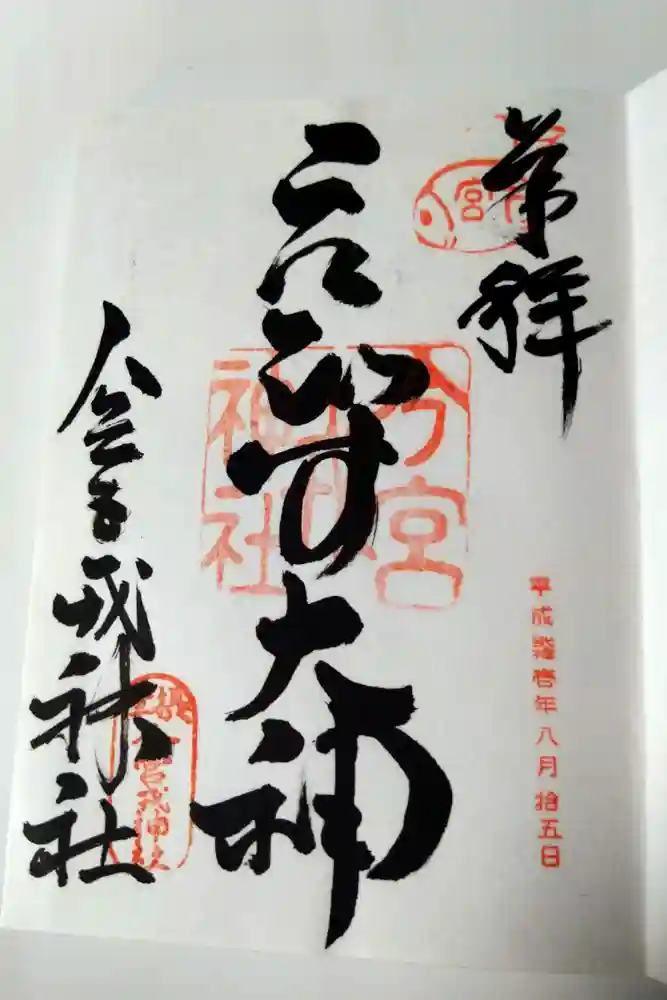 奉拝
す大神
今宮戎神社
今宮
戎
神社
宮
平成 年八月拾五日